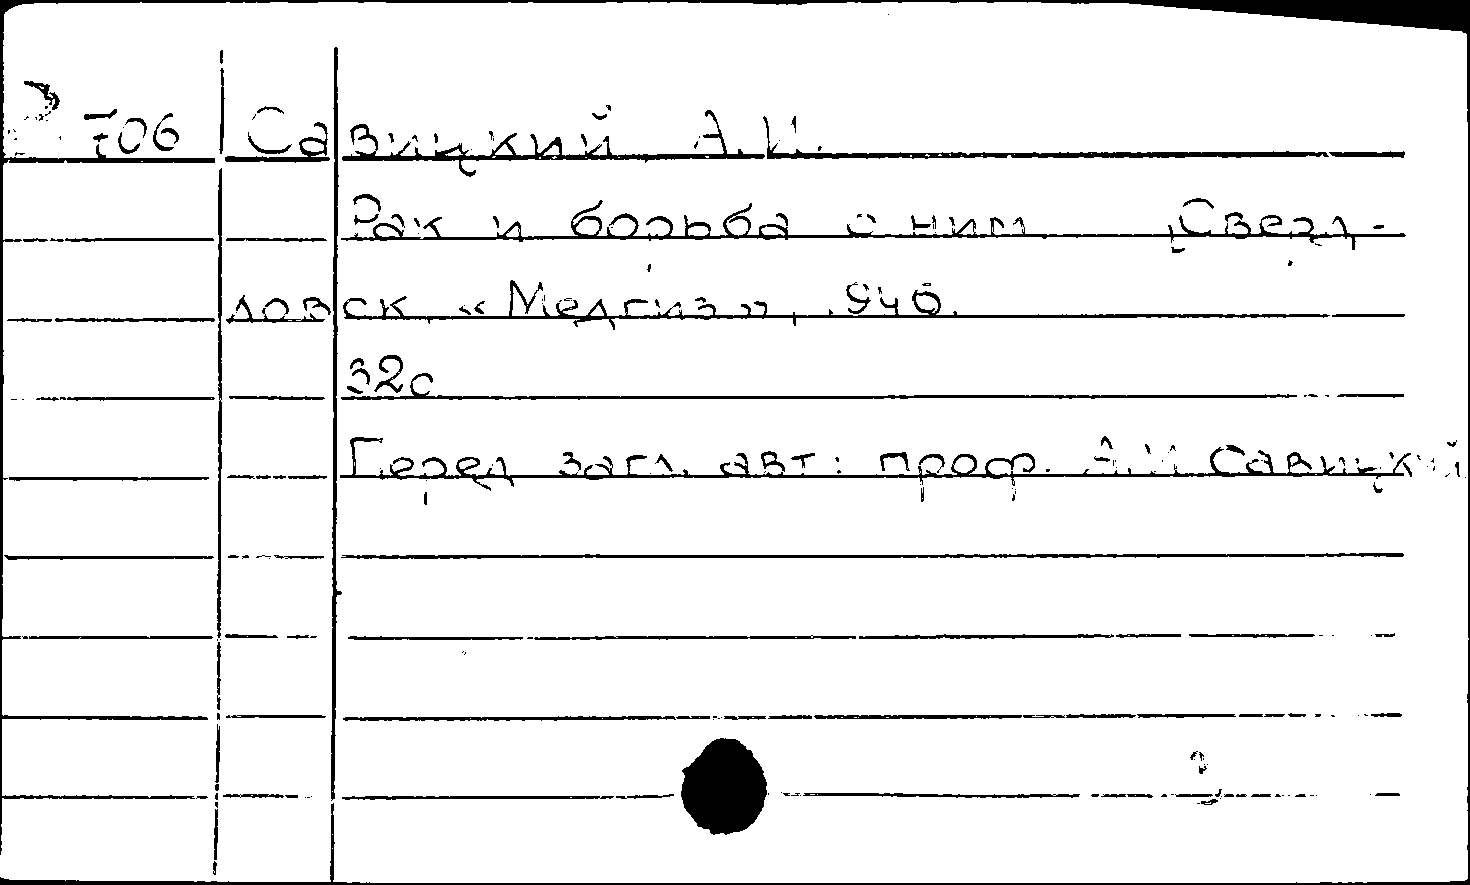 706 Савицкий А.И.
Рак и борьба с ним. [Сверд-
ловск, «Медгиз», 1946.
32с.
Перед загл. авт.: проф. А.И. Савицкий